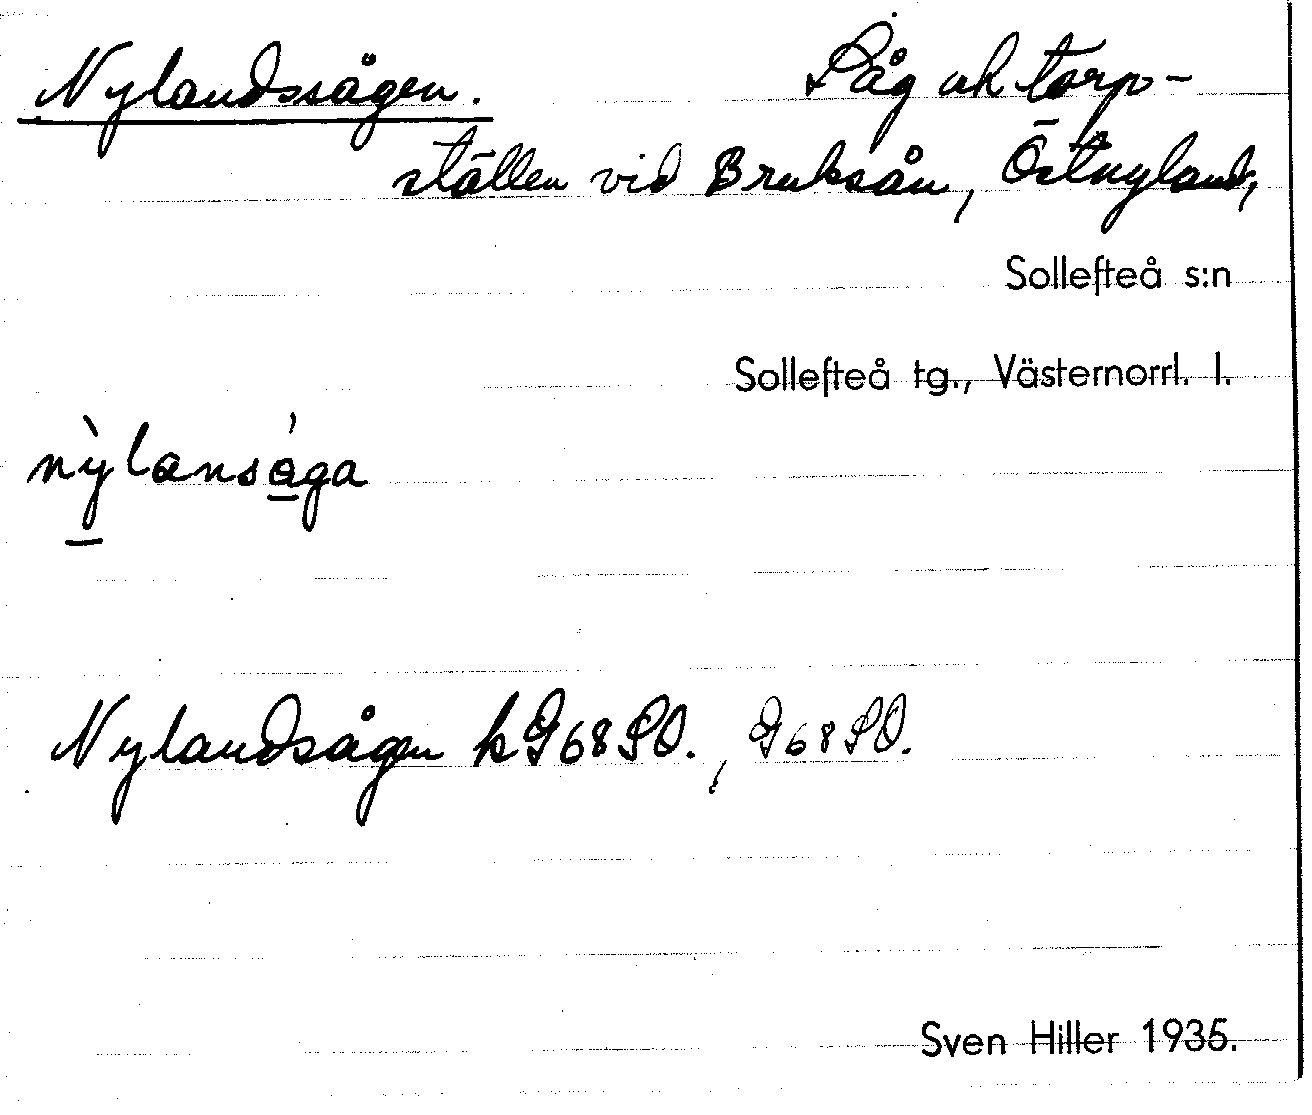 Nylandssågen. Såg ok torp-
ställen vid Bruksån, Östnyland,
Sollefteå s:n
Sollefteå tg., Västernorrl. l.
nỳlansá̱ga
Nylandsågen k G 68 SO., G 68 SO.
Sven Hiller 1935.